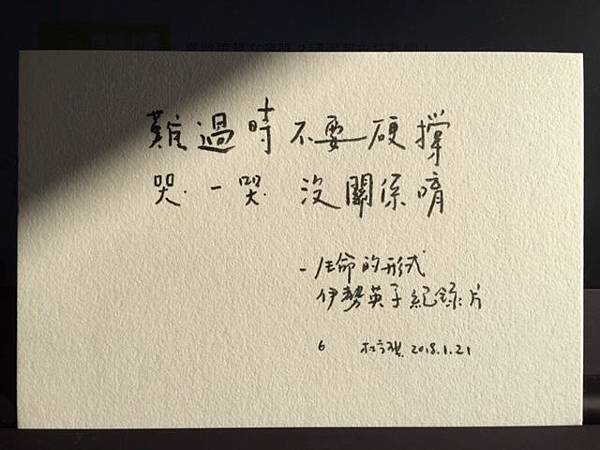 難過時不要硬撐
哭一哭 沒關係唷
-生命的形式
伊勢英子紀錄片
6 2018.1.21